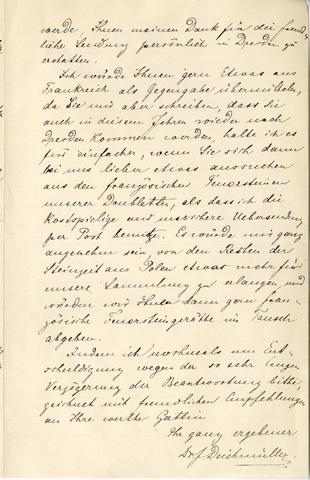 werde, Ihnen meinen Dank für die freund-
liche Sendung persönlich in Dresden zu
erstatten.
Ich würde Ihnen gern Etwas aus
Frankreich als Gegengabe übermitteln,
da Sie mir aber schreiben, dass Sie
auch in diesem Jahre wieder nach
Dresden kommen werden, halte ich es
für einfacher, wenn Sie sich dann
bei uns lieber etwas aussuchen
aus den französischen Feuersteinen
unserer Doubletten, als dass ich die
kostspielige und unsichere Uebersendung
per Post benutze. Es würde mir ganz
angenehm sein, von den Resten der
Steinzeit aus Polen etwas mehr für
unsere Sammlung zu erlangen, und
würden wir Ihnen dann gern fran-
zösische Feuersteingeräthe im Tausch
abgeben.
Indem ich nochmals um Ent-
schuldigung wegen der so sehr langen
Verzögerung der Beantwortung bitte,
zeichnet mit freundlichen Empfehlungen
an Ihre werthe Gattin
Ihr ganz ergebener
Dr. J. Deichmüller.